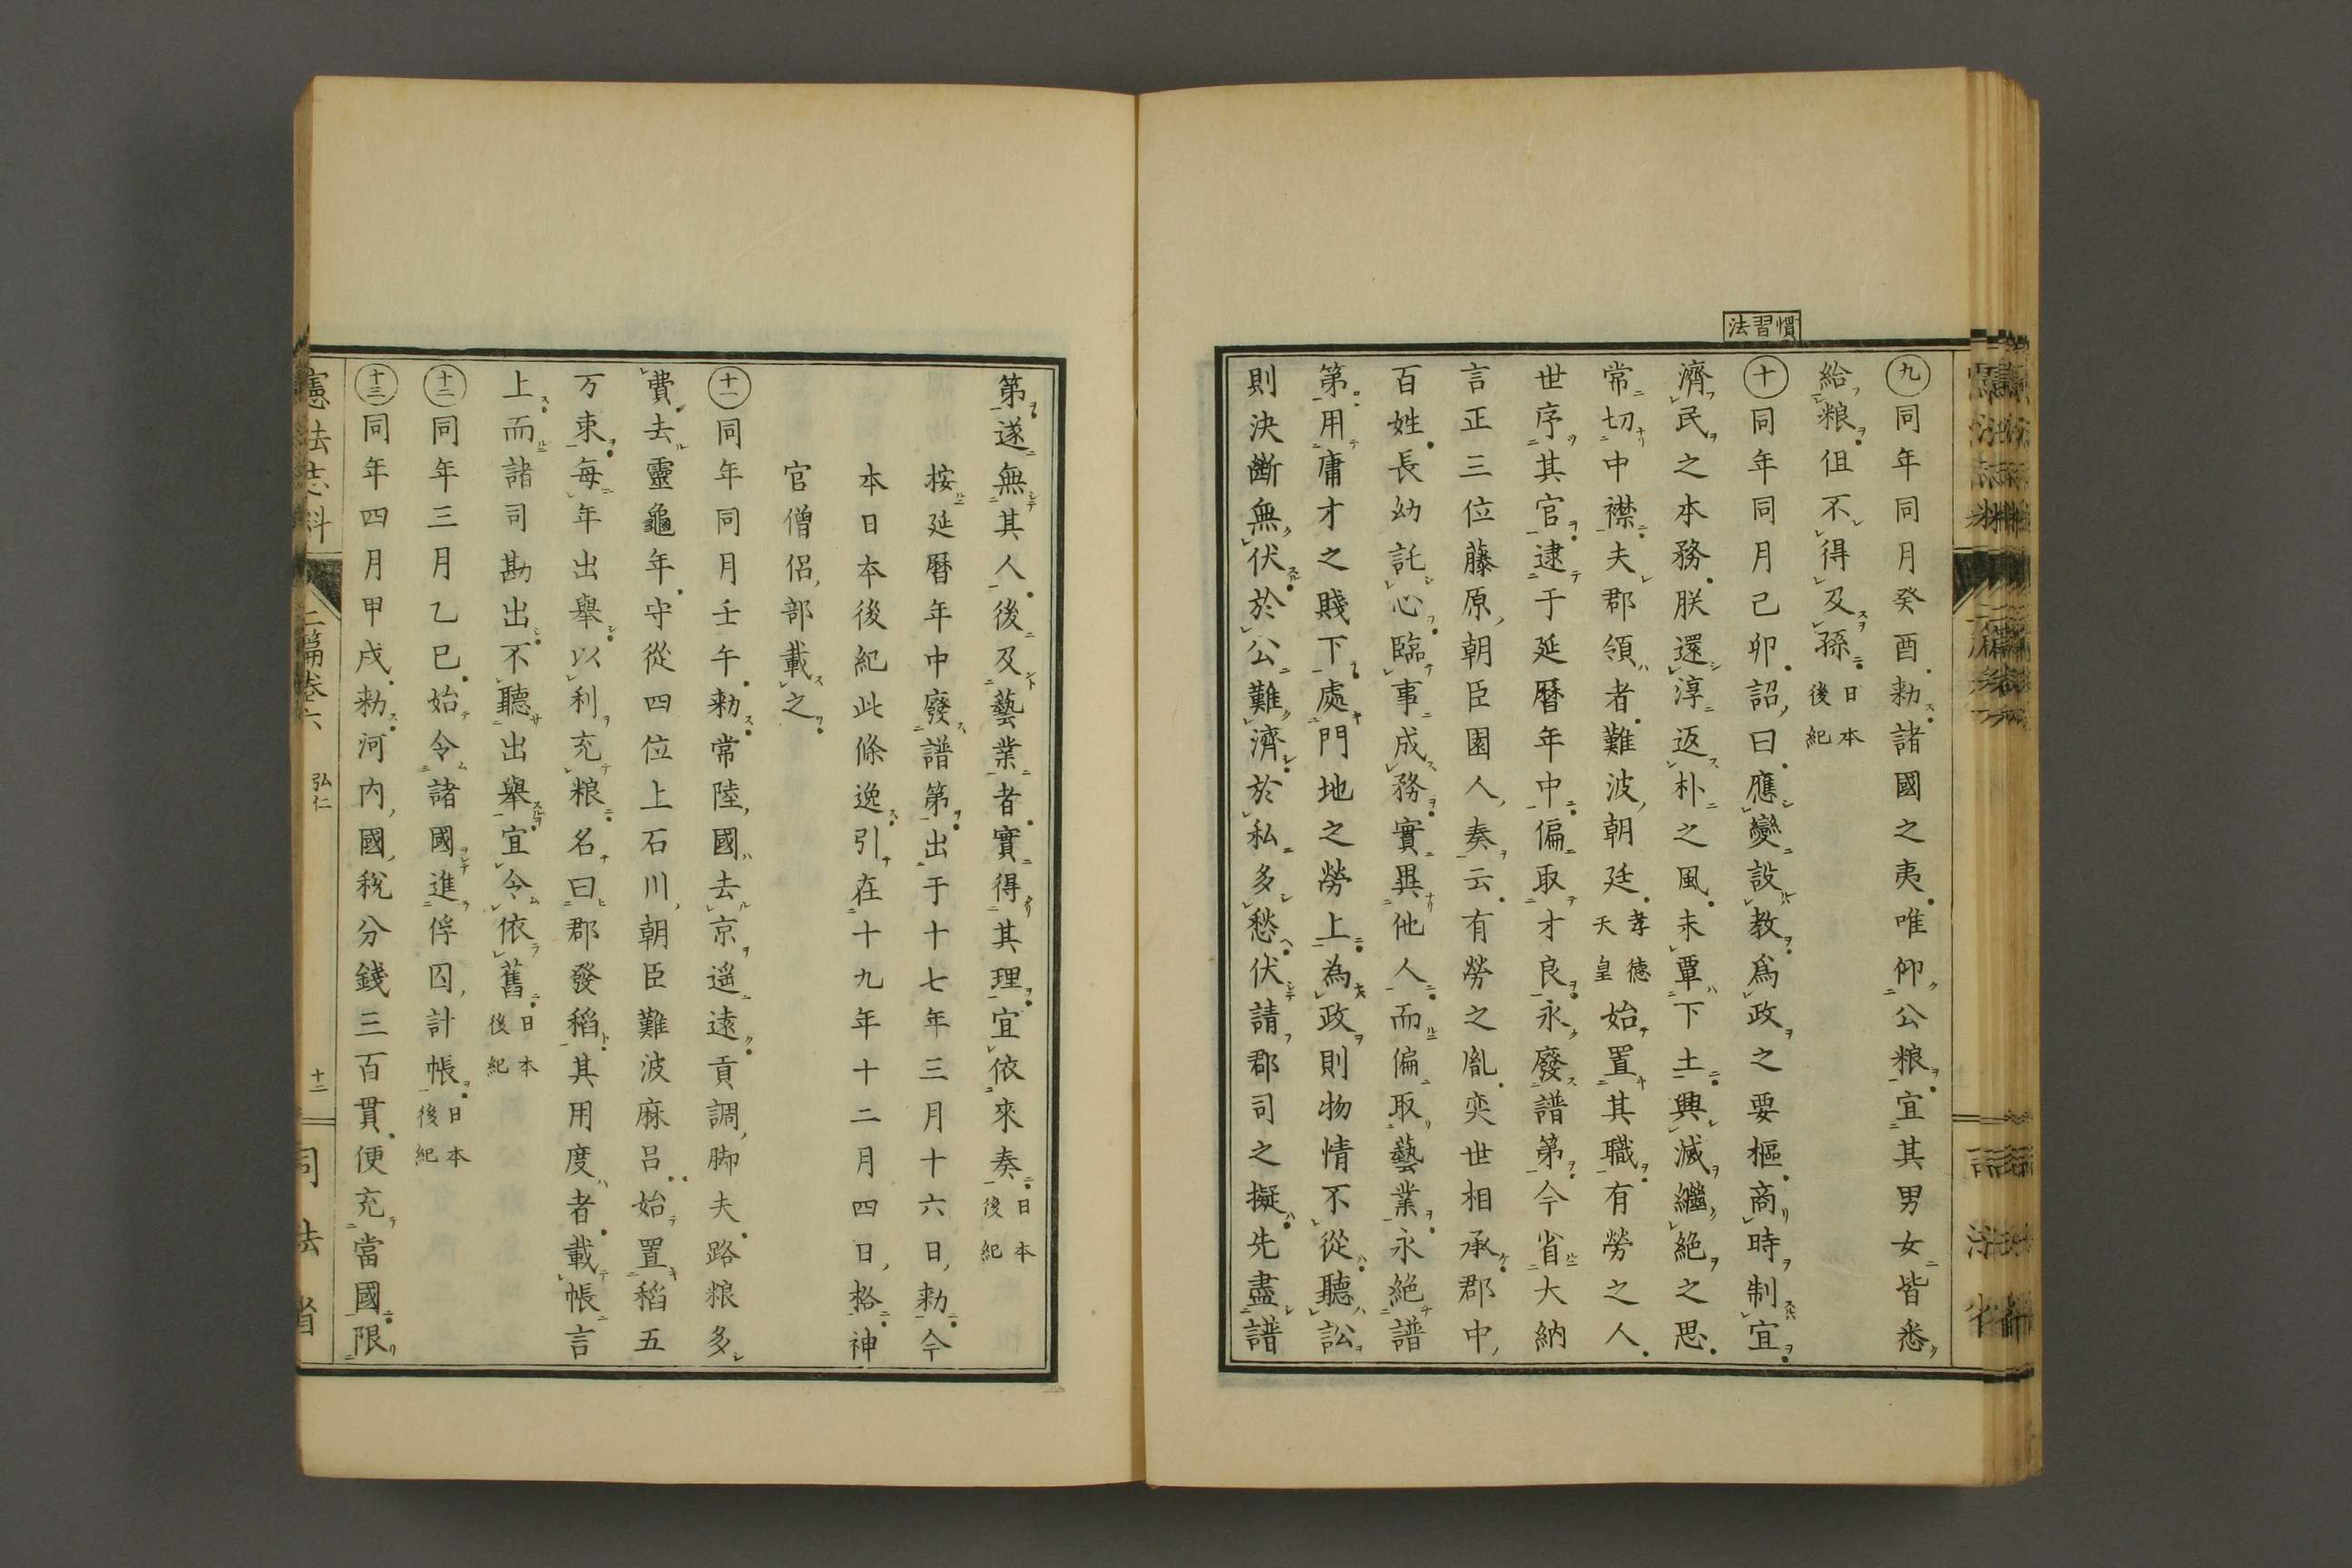 慣習法
㊈同年同月癸酉勅諸國之夷唯仰公粮宜其男女皆悉
給粮但不得及孫日本後紀
㊉同年同月己卯詔曰應變設教爲政之要樞商時制宜
濟民之本務朕還淳返朴之風未覃下土興滅繼絶之思
常切中襟夫郡領者難波朝廷孝德天皇始置其職有勞之人
世序其官逮于延暦年中偏取才良永廢譜第今省大納
言正三位藤原朝臣園人奏云有勞之胤奕世相承郡中
百姓長幼託心臨事成務實異他人而偏取藝業永絶譜
第用庸才之賤下處門地之勞上為政則物情不從聽訟
則決斷無伏於公難濟於私多愁伏請郡司之擬先盡譜
第遂無其人後及藝業者實得其理宜依來奏日本後紀
按延暦年中廢譜第出于十七年三月十六日勅今
本日本後紀此條逸引在十九年十二月四日格神
官僧侶部載之
⑪同年同月壬午勅常陸國去京遥遠貢調脚夫路粮多
費去靈龜年守從四位上石川朝臣難波麻呂始置稻五
万束每年出舉以利充粮名曰郡發稻其用度者載帳言
上而諸司勘出不聽出舉宜令依舊日本後紀
⑫同年三月乙巳始令諸國進俘囚計帳日本後紀
⑬同年四月甲戌勅河内國税分錢三百貫便充當國限
憲法志料 二篇卷六 弘仁 十二 司法省